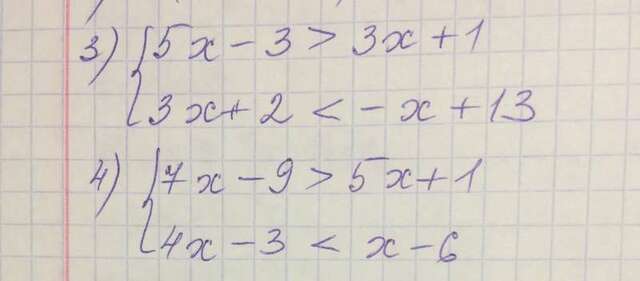 3) { 5x - 3 > 3x + 1
3x + 2 < - x + 13
4) { 7x - 9 > 5x + 1
4x - 3 < x - 6